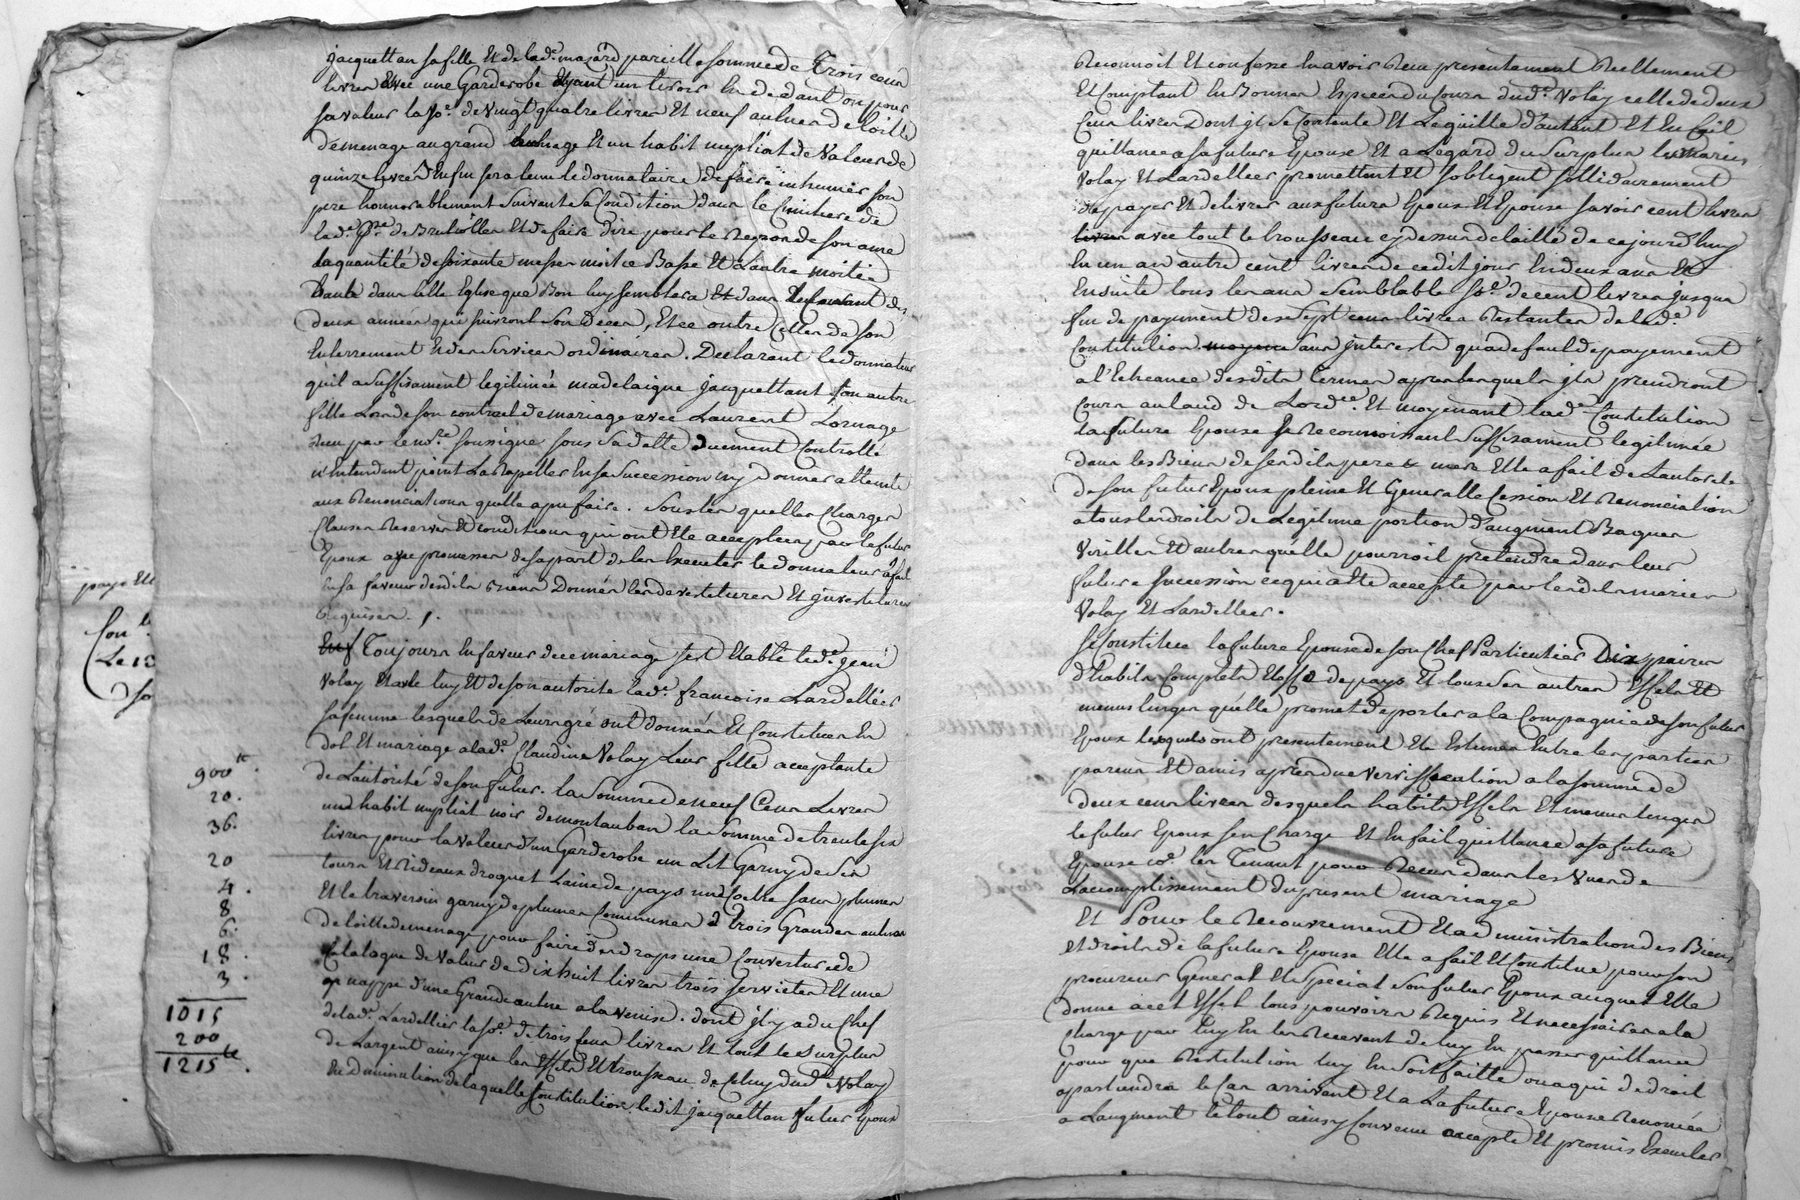 jacquettan sa fille Et de lad.e majard pareille somme de Trois cens
livres avec une Garderobe Ayant un tiroir En dedant ou pour
sa valeur la so.e de vingt quatre livres Et neuf aulnes de toille
de menage au grand aulnage Et un habit nuptial de Valeur de
quinze livres Enfin sera tenu le donnataire de faire inhumér son
pere honnorablement suivant sa Condition dans le Cimitiere de
lad.e p.sse de Brulliolles Et de faire dire pour le Repos de son ame
la quantité de soixante messes moitié Basse Et L'autre moitié
haute dans telle Eglise que Bon luy semblera Et dans Le Courant des
deux années qui suivront son Decès, Et ce outre Celles de son
Enterrement Et des services ordinaires. Declarant le donnateur
qu'il a suffisament legitimée madelaigne jacquettant son autre
fille Lors de son contract de mariage avec Laurent Lornage
Reçu par le no.re soussigné sous sa datte duement Controllé
n'Entendant point La Rapeller En sa succession ny donner atteinte
aux Renonciations qu'elle a pu faire. Sous les quelles Charges
Clauses Reserves Et conditions qui ont Eté acceptées par le futur
Epoux avec promesses de sa part de les Executer le donnateur a fait
En sa faveur desdits Biens Donnés les devestitures Et jnvestitures
Requises. /.
Toujours En faveur de ce mariage s'est Etablie led.e jean
Volay Et avec luy Et de son autorité lad.e francoise Lardelliér
sa femme lesquels de Leurs gré ont donnés Et Constitués En
dot Et mariage a lad.e Claudine Volay Leur fille acceptante
de L'autorité de son futur. la Somme de neuf Cens Livres
900tt.
un habit nuptial noir de montauban la Somme de trente six
20.
livres pour la Valeur d'un Garderobe un Lit Garny de son
36.
tours Et Rideaux droguet Laine de pays un Coetre sans plumes
20
Et le traversin garny de plumes Communes & trois Grandes aulnes
4.
de toille de menage pour faire des draps une Couverture de
8
6.
Catalogne de Valeur de dix huit livres trois servietes Et une
18.
nappe d'une Grande aulne a la venise. dont jl y a du Chef
3.
de lad.e Lardellier la so.e de trois Cens livres Et tout le surplus
1015
de L'argent ainsy que les Effets Et trousseau de Celuy dud.e Volay
200
En Diminution de laquelle Constitution, ledit jacquettan futur Epoux
1215tt.
paye Et
Con.le
Le 13
So
Reconnoit Et confesse En avoir Reçu presentement Reellement
Et Comptant En Bonnes Especes du Cours dud.e Volay celle de deux
Cens livres Dont jl se Contente Et Le quitte d'autant Et En fait
quittance a sa future Epouse Et a L'egard du surplus les mariés
Volay Et Lardellier promettent Et s'obligent sollidairement
de payer Et delivrer aux futurs Epoux Et Epouse savoir cent livres
livres avec tout le trousseau cy dessus detaillé de ce jourd'huy
En un an autre cent livres de cedit jour En deux ans Et
Ensuite tous les ans semblable so.e de cent livres jusqua
fin de payment des sept cens livres Restantes de lad.e
Constitution sans Interests qua defaut de payement
a l'Echeance desdits Termes apres lesquels jls prendront
Cours au taud de Lord.ce Et moyenant lad.e Constitution
la future Epouse se Reconnoissant Suffisament legitimée
dans les Biens de sesdits pere & mere Elle a fait de L'autorité
de son futur Epoux pleine Et Generalle Cession Et Renonciation
a tous les droits de Legitime portion d'augment Bagues
Virilles Et autres qu'elle pourroit pretendre dans leur
future Succession ce qui a Eté accepté par lesdits mariés
Volay Et Lardellier.
Se Constitue la future Epouse de son Chef Particulier Dix paires
d'habits Complets Etoffe de pays Et tous ses autres Effets Et
menus linges qu'elle promet de porter a la Compagnie de son futur
Epoux lesquels ont presentement Eté Estimés Entre les parties
parens Et amis apres due Veriffication a la somme de
deux cens livres desquels habits Effets Et menus linges
le futur Epoux s'en Charge Et En fait quittance a sa future
Epouse co.e les Tenant pour Recus dans les Vues de
L'accomplissement du present mariage
Et Pour le Recouvrement Et administration des Biens
Et droits de la future Epouse Elle a fait Et Constitué pour son
procureur General Et Special Son futur Epoux auquel Elle
donne a cet Effet tous pouvoirs Requis Et necessaires a la
charge par luy En les Recevant de luy En passer quittance
pour que Restitution luy En soit faitte ou a qui de droit
apartiendra le cas arrivant Et a La future Epouse Renoncée
a Laugment le tout ainsy Convenu accepté Et promis Executer